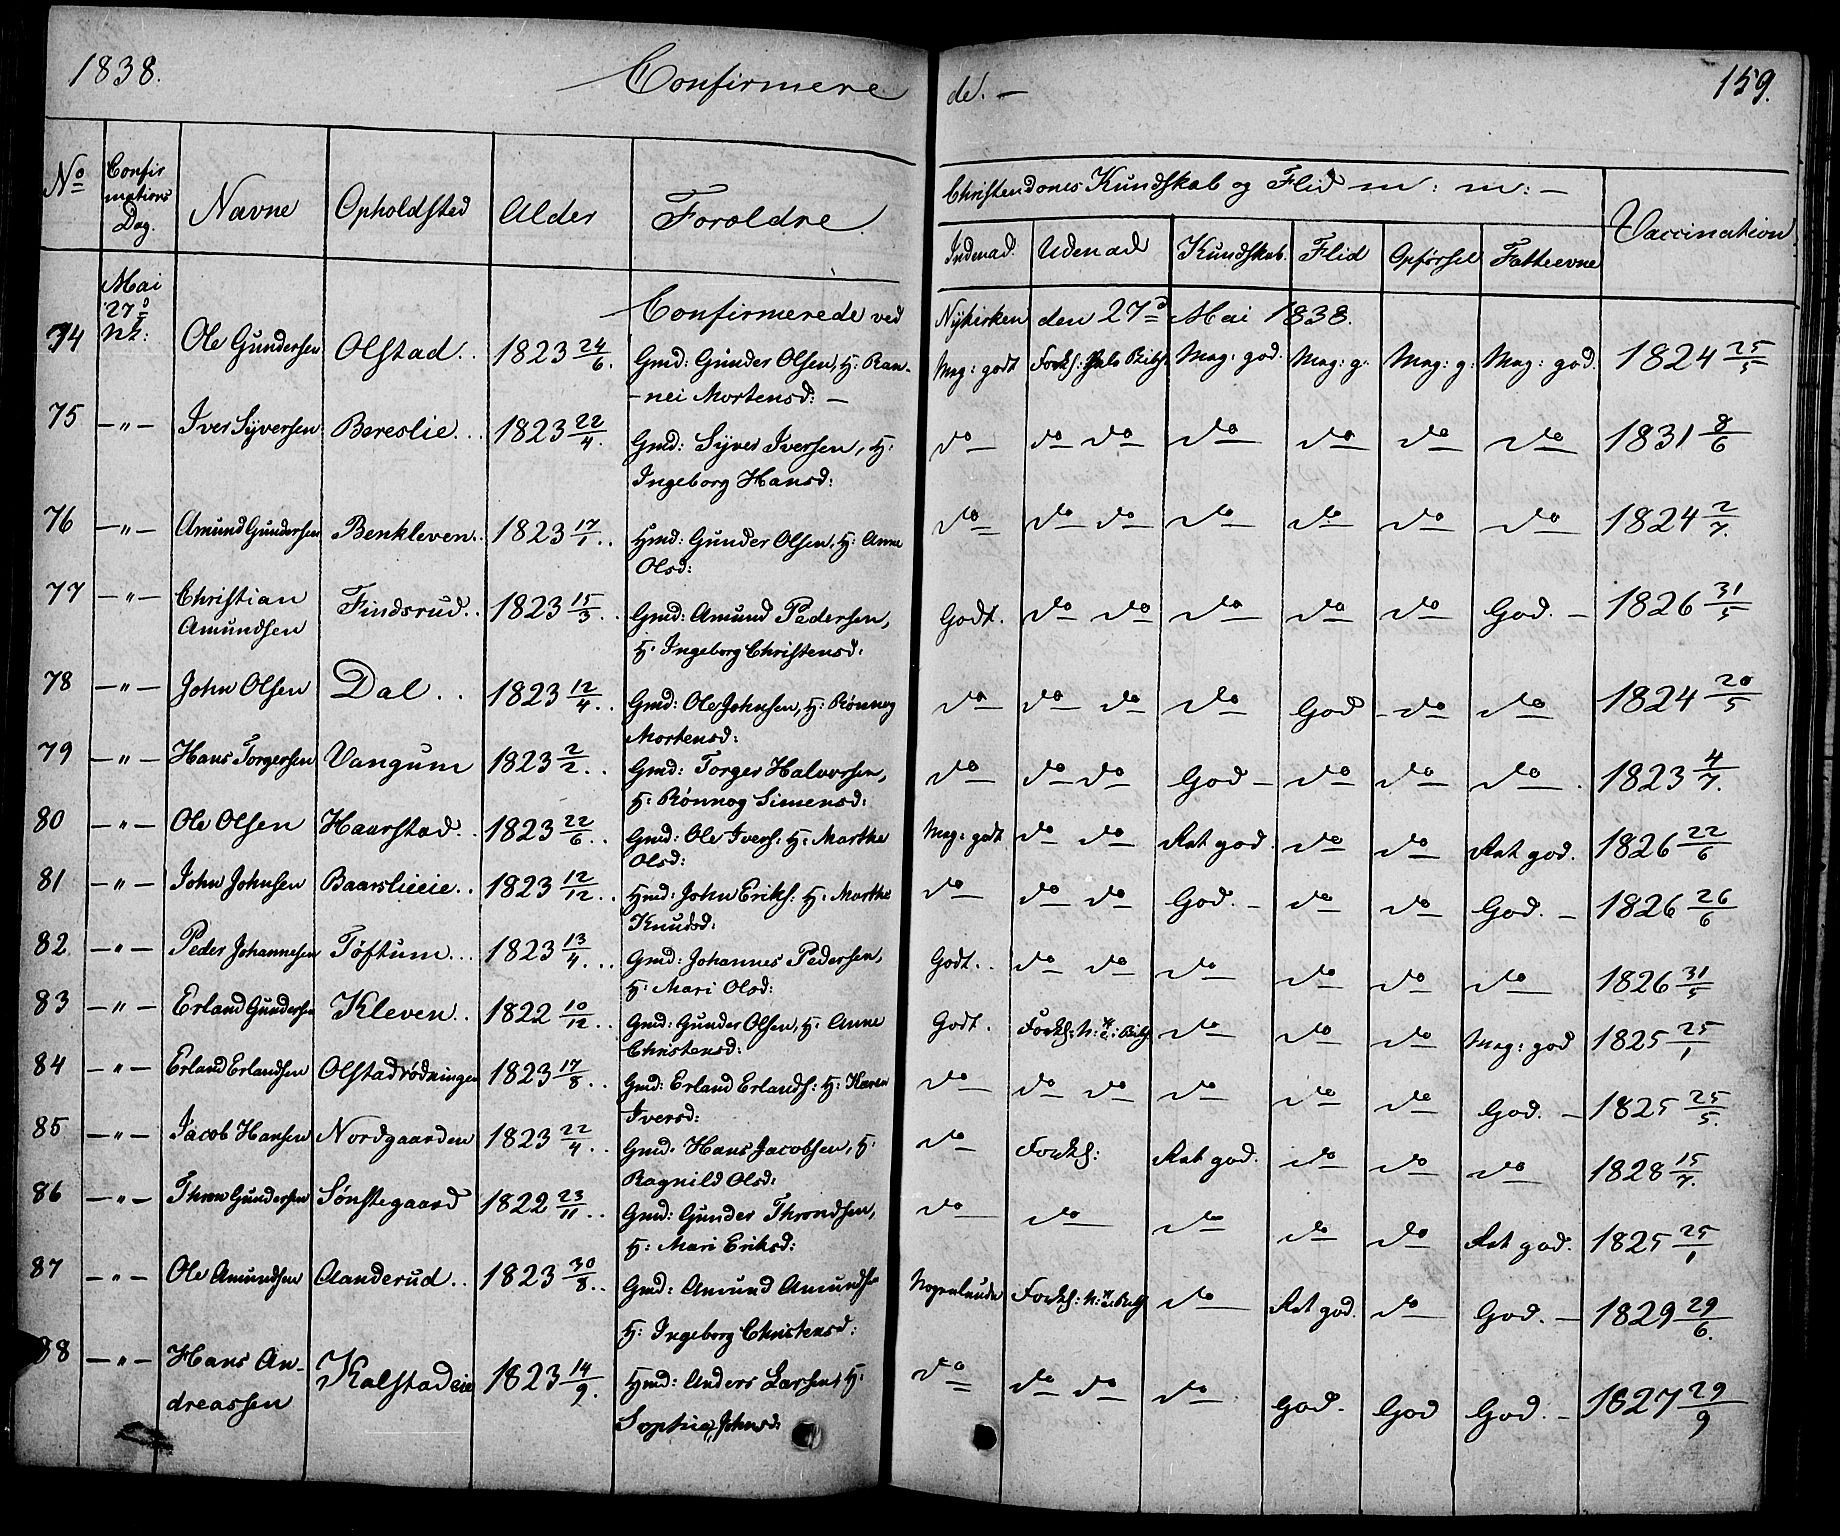 1838. Confirmere de. — 159.
No Confirmations Dag. Navne Opholdsted Alder Forældre Christendoms Kundskab og Flid m: m: — Vaccination
Indenad. Udenad Kundskab. Flid Opførsel Fatteevne
Mai 27d Nk: Confirmerede ved Nykirken den 27d Mai 1838.
74 Ole Gundersen Olstad.. 1823 24/6. Gmd: Gunder Olsen, H: Ran- Mag: godt Forkl: Mag: god. Mag: g. Mag: g: Mag: god. 1824 25/5
nei Mortensd: —
75 —"— Iver Syversen Bereslie... 1823 22/4. Gmd: Syver Iversen, H: do do do do do do do 1831 8/6
Ingeborg Hansd:
76 —"— Amund Gundersen Benkleven.. 1823 17/1.. Hmd: Gunder Olsen, H: Anne do do do do do do do 1824 2/7.
Olsd:
77 —"— Christian Findsrud.. 1823 15/3.. Gmd: Amund Pedersen, Godt. do do do do do God. — 1826 31/5
Amundsen H: Ingeborg Christensd:
78 —"— John Olsen Dal.. 1823 12/4.. Gmd: Ole Johnsen, H: Rønnog do do do do God — do do 1824 20/5
Mortensd:
79 —"— Hans Torgersen Vangum 1823 2/2.. Gmd: Torger Halvorsen, do do do God — do do do. 1823 4/7.
H: Rønnog Simensd:
80 —"— Ole Olsen Haarstad.. 1823 22/6.. Gmd: Ole Ivers: H: Marthe Mag: godt do do Ret god. do do Ret god. 1826 22/6
Olsd:
81 —"— John Johnsen Baarslieeie.. 1823 12/12.. Hmd: John Eriks: H: Marthe do do do God. — do do God. — 1826 26/6
Knudsd:
82 —"— Peder Johannesen Tøftum... 1823 13/4... Gmd: Johannes Pedersen, Godt.. do do do do do do 1826 31/5
H: Mari Olsd:
83 —"— Erland Gundersen Kleven.. 1822 10/12.. Gmd: Gunder Olsen, H: Anne Godt. Forkl: do do do Mag: god 1825 25/1
Christensd:
84 —"— Erland Erlandsen Olstadrødningen 1823 17/8.. Gmd: Erland Erlands: H: Karen do do do do do do God. — 1825 25/5.
Iversd:
85 —"— Jacob Hansen Nordgaarden 1823 22/4.. Gmd: Hans Jacobsen, H: do Forkl: Ret god. do do do 1828 15/7.
Ragnild Olsd:
86 —"— Thron Gundersen Sønstegaard 1822 23/11.. Gmd: Gunder Throndsen, do do do do do Ret god. 1825 25/1
H: Mari Eriksd:
87 —"— Ole Amundsen Aanderud.. 1823 30/8.. Gmd: Amund Amunds Nogenlunde Forkl: do Ret god. do God. — 1829 29/6.
H: Ingeborg Christensd:
88 —"— Hans An- Kalstadeie 1823 14/9. Hmd: Anders Larsen, H: do do do do God. God God. — 1827 29/9
dreassen Sophie Johnsd: